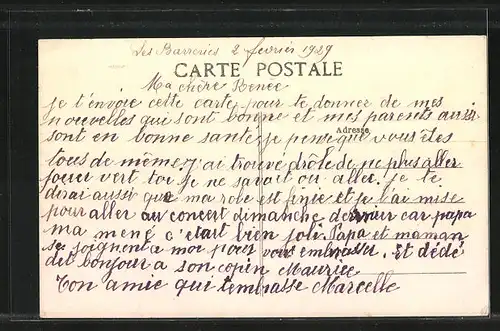 Les Barreries 2 fevrier 1929
CARTE POSTALE
Ma chère Renée
je t'envoie cette carte pour te donner de mes
nouvelles qui sont bonne et mes parents aussi
Adresse
sont en bonne sante, je pense que vous êtes
tous de même, j'ai trouvé drôle de ne plus aller
jouer vert toi je ne savait ou aller. je te
dirai aussi que ma robe est finie et je l'ai mise
pour aller au concert dimanche dernier car papa
ma mené c'etait bien joli. Papa et maman
se joignent a moi pour vous embrasser. Et dédé
dit bonjour a son copin Maurice
Ton amie qui t'embrasse Marcelle